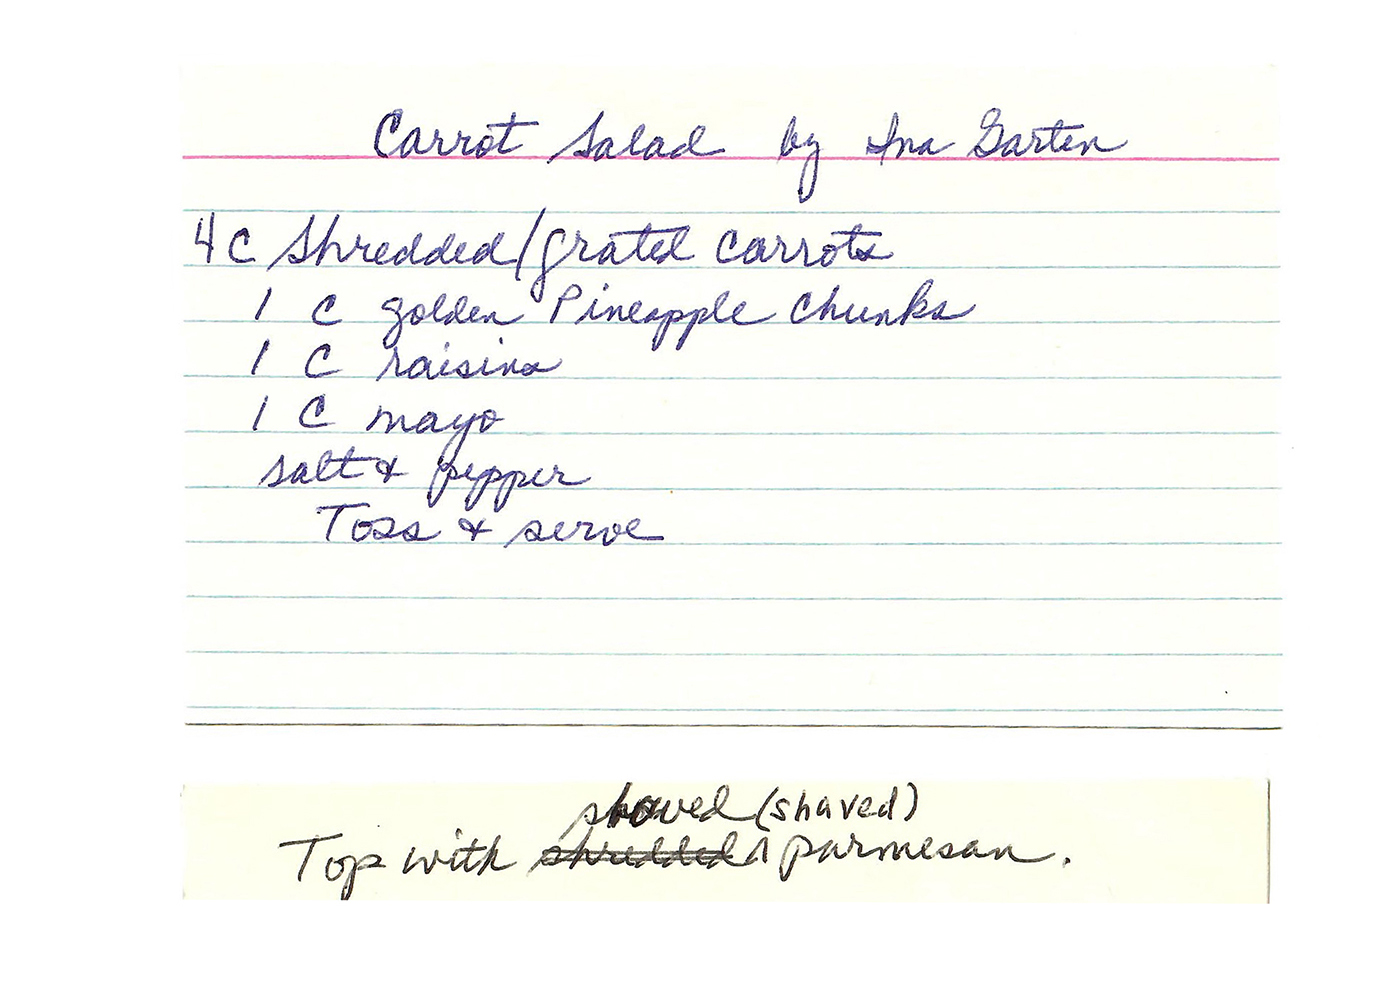 Carrot Salad by Ina Garten
4 C Shredded/grated carrots
1 C golden Pineapple Chunks
1 C raisins
1 C mayo
salt & pepper
Toss & serve
shaved (shaved)
Top with shredded ^ parmesan.